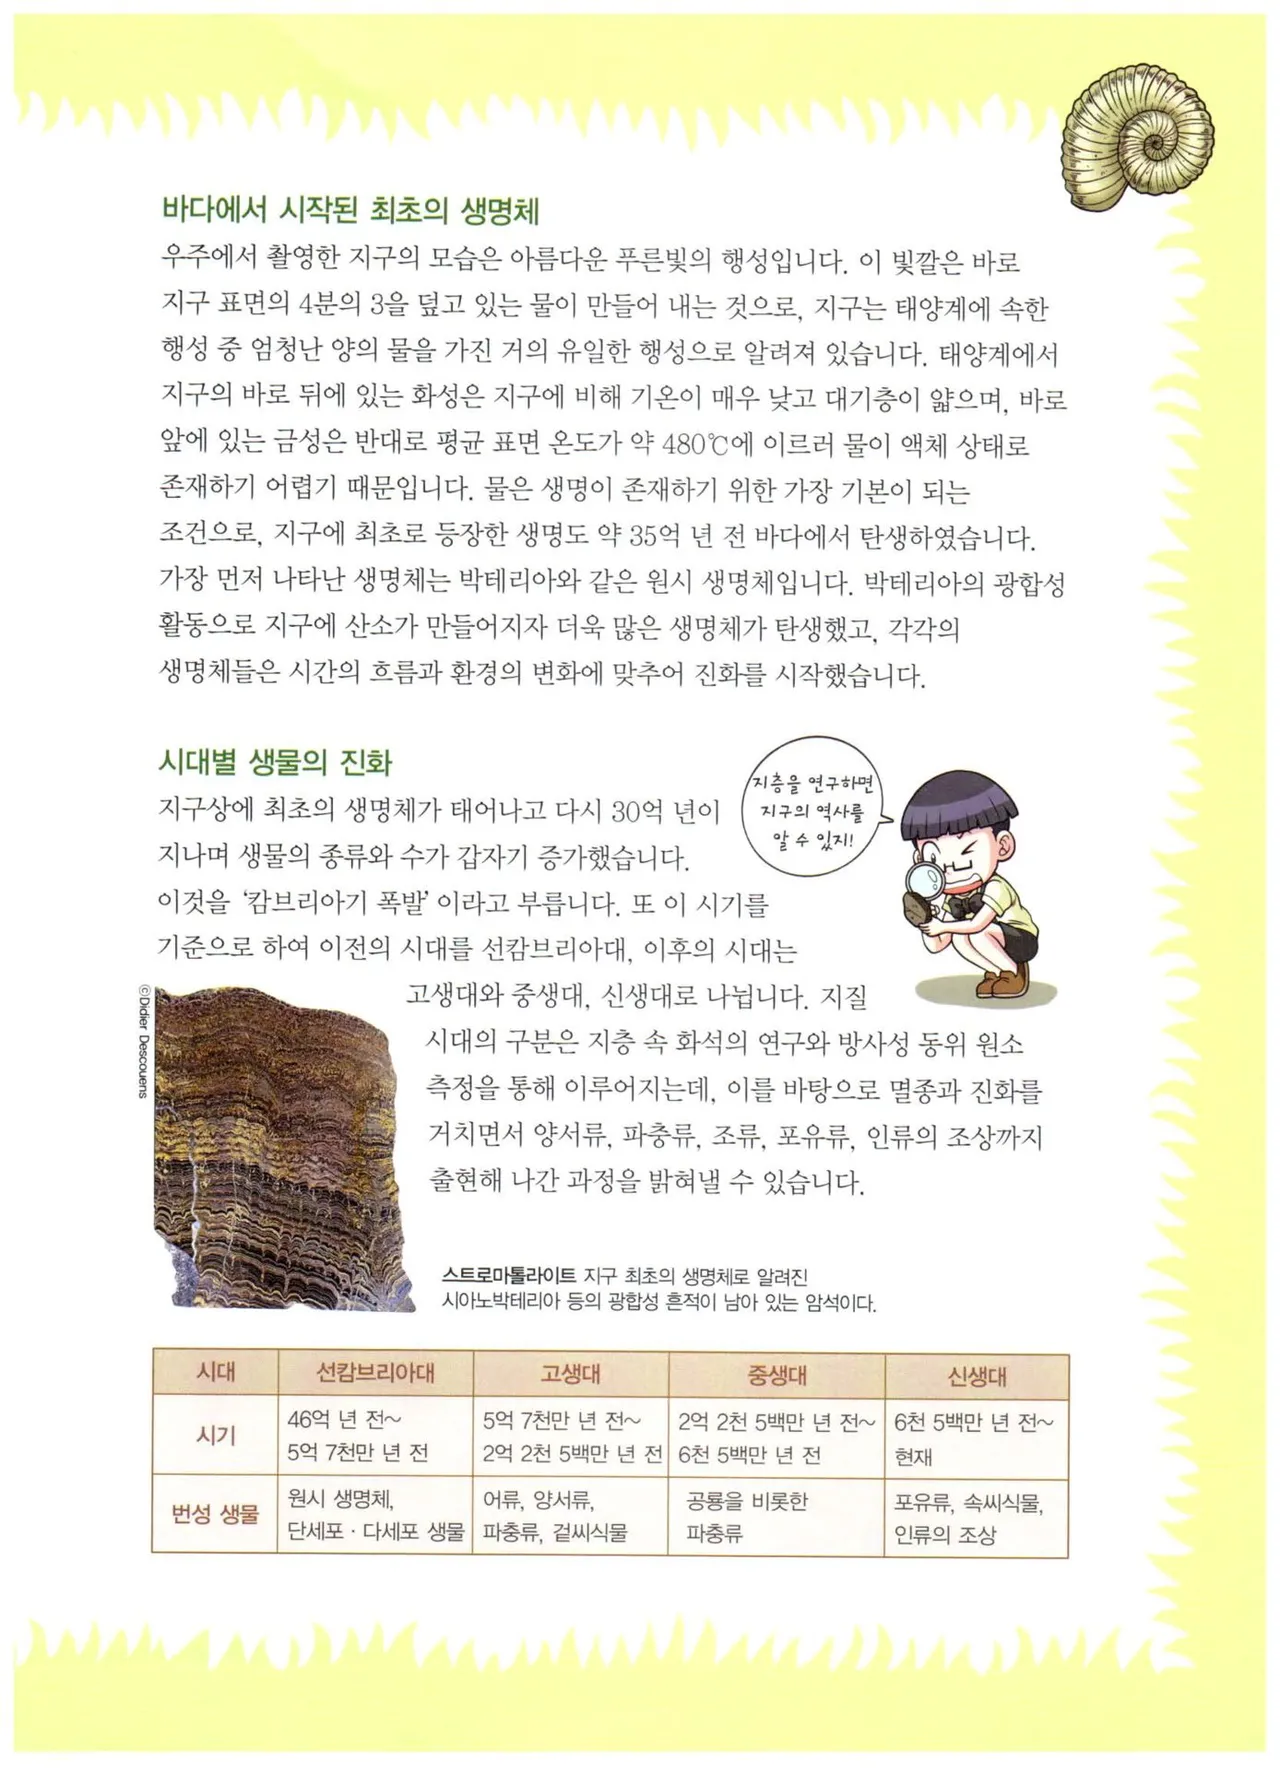 바다에서 시작된 최초의 생명체
우주에서 촬영한 지구의 모습은 아름다운 푸른빛의 행성입니다. 이 빛깔은 바로
지구 표면의 4분의 3을 덮고 있는 물이 만들어 내는 것으로, 지구는 태양계에 속한
행성 중 엄청난 양의 물을 가진 거의 유일한 행성으로 알려져 있습니다. 태양계에서
지구의 바로 뒤에 있는 화성은 지구에 비해 기온이 매우 낮고 대기층이 얇으며, 바로
앞에 있는 금성은 반대로 평균 표면 온도가 약 480℃에 이르러 물이 액체 상태로
존재하기 어렵기 때문입니다. 물은 생명이 존재하기 위한 가장 기본이 되는
조건으로, 지구에 최초로 등장한 생명도 약 35억 년 전 바다에서 탄생하였습니다.
가장 먼저 나타난 생명체는 박테리아와 같은 원시 생명체입니다. 박테리아의 광합성
활동으로 지구에 산소가 만들어지자 더욱 많은 생명체가 탄생했고, 각각의
생명체들은 시간의 흐름과 환경의 변화에 맞추어 진화를 시작했습니다.
시대별 생물의 진화
지구상에 최초의 생명체가 태어나고 다시 30억 년이
지나며 생물의 종류와 수가 갑자기 증가했습니다.
이것을 '캄브리아기 폭발' 이라고 부릅니다. 또 이 시기를
기준으로 하여 이전의 시대를 선캄브리아대, 이후의 시대는
고생대와 중생대, 신생대로 나뉩니다. 지질
시대의 구분은 지층 속 화석의 연구와 방사성 동위 원소
측정을 통해 이루어지는데, 이를 바탕으로 멸종과 진화를
거치면서 양서류, 파충류, 조류, 포유류, 인류의 조상까지
출현해 나간 과정을 밝혀낼 수 있습니다.
지층을 연구하면
지구의 역사를
알 수 있지!
ⓒDidier Descouens
스트로마톨라이트 지구 최초의 생명체로 알려진
시아노박테리아 등의 광합성 흔적이 남아 있는 암석이다.
시대 선캄브리아대 고생대 중생대 신생대
시기
46억 년 전~
5억 7천만 년 전
5억 7천만 년 전~
2억 2천 5백만 년 전
2억 2천 5백만 년 전~
6천 5백만 년 전
6천 5백만 년 전~
현재
번성 생물
원시 생명체,
단세포 · 다세포 생물
어류, 양서류,
파충류, 겉씨식물
공룡을 비롯한
파충류
포유류, 속씨식물,
인류의 조상